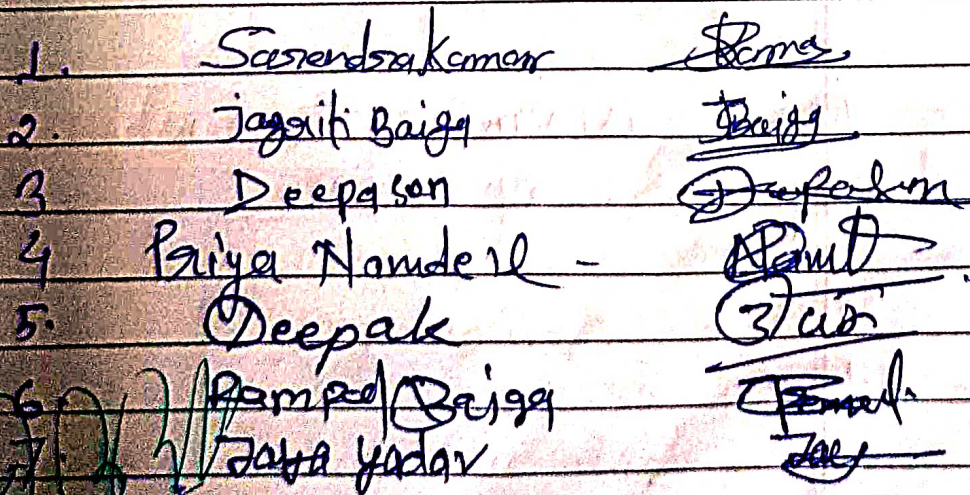 1. Sasrendra Kamar
2. Jagriti Baiga Baiga
3 Deepa son Deepason
4 Priya Namdev -
5. Deepak
6 Rampal Baiga
7. Jaya yadav Jay